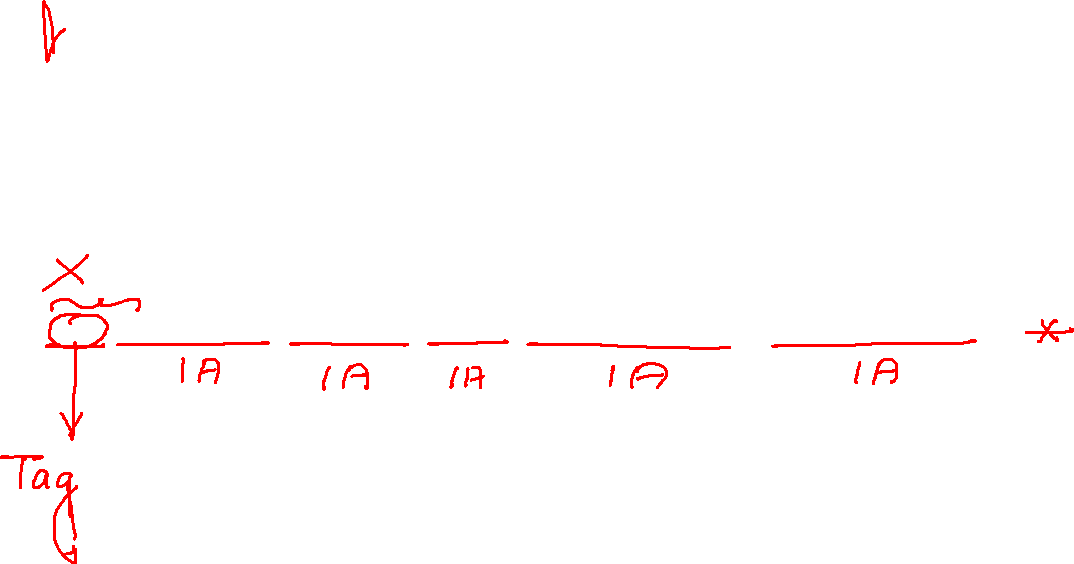 X
x
1A 1A 1A 1A 1A
Tag